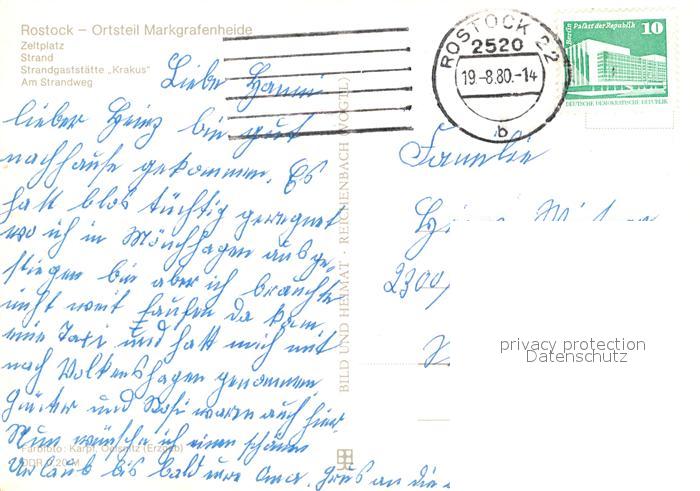 Rostock – Ortsteil Markgrafenheide
Zeltplatz
Strand
Strandgaststätte „Krakus"
Am Strandweg
Liebe Hanni
lieber Heinz bin gut
nachhause gekommen. Es
hatt blos tüchtig geregnet
wo ich in Mönchhagen ausge-
stiegen bin aber ich brauchte
nicht weit laufen da kam
eine Taxi und hatt mich mit
nach Volkenshagen genommen
Günter und Rosi waren auch hier.
Nun wünsche ich einen schönen
Urlaub bis bald eure Oma. Grus an die
Farbfoto: Karpf, Oelsnitz (Erzgeb)
BILD UND HEIMAT · REICHENBACH (VOGTL)
ROSTOCK 22
2520
19.-8.80.-14
b
Berlin Palast der Republik
10
DEUTSCHE DEMOKRATISCHE REPUBLIK
Familie
2300
privacy protection
Datenschutz